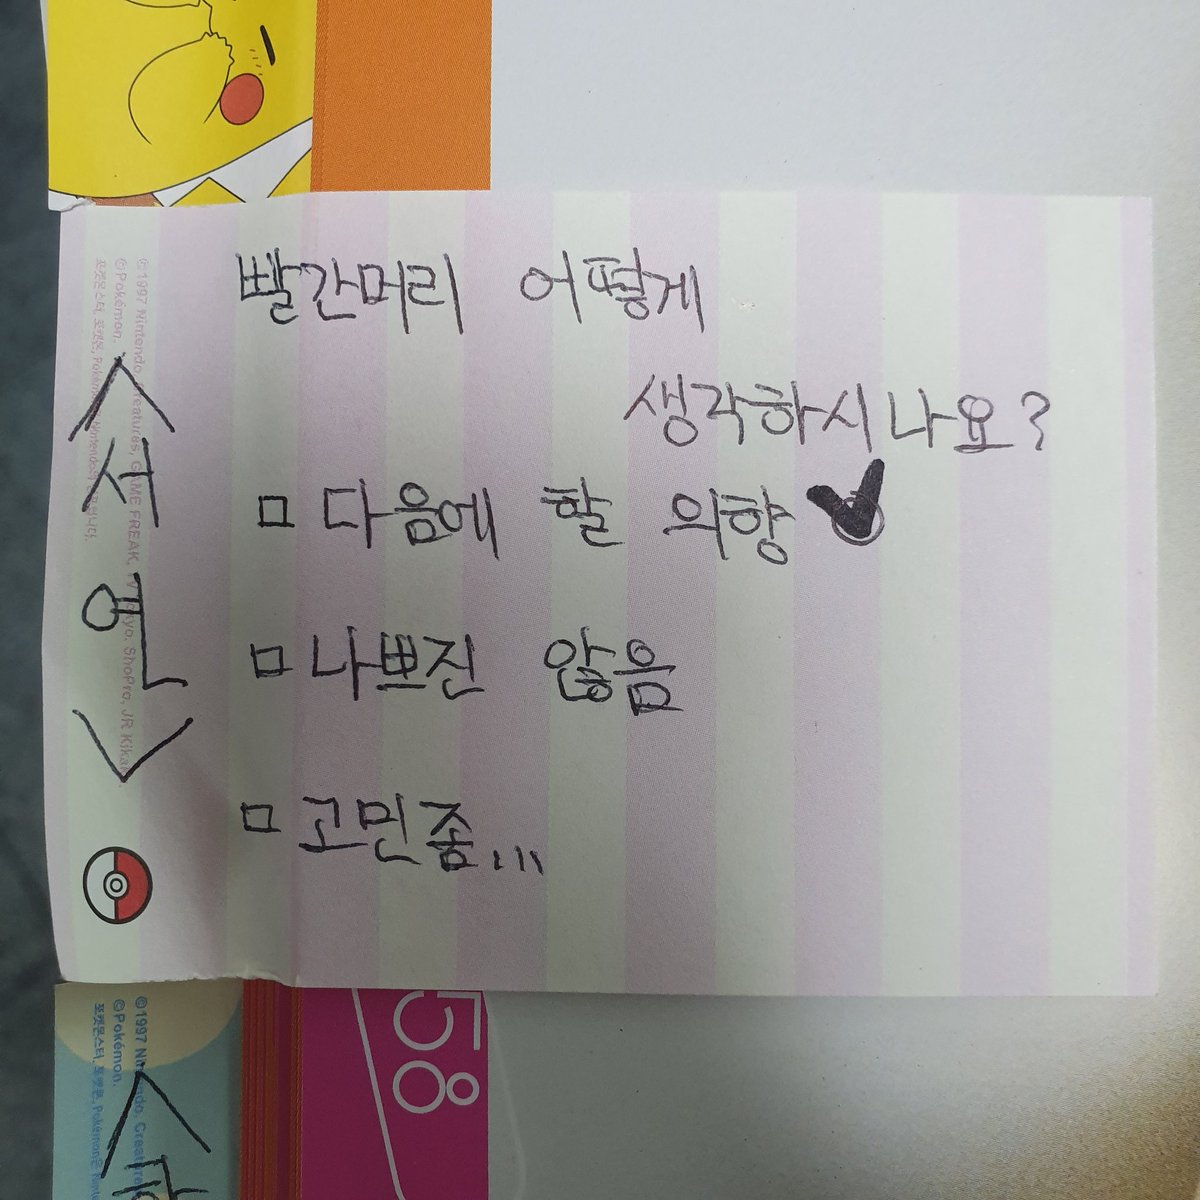 빨간머리 어떻게
생각하시나요?
□ 다음에 할 의향
□ 나쁘진 않음
□ 고민좀...
<서연>
©1997 Nintendo, Creatures, GAME FREAK, ShoPro, JR Kikaku.
©Pokémon.
포켓몬스터, 포켓몬, Pokémon
58
©1997 Nintendo, Creatures
©Pokémon.
포켓몬스터, 포켓몬, Pokémon은